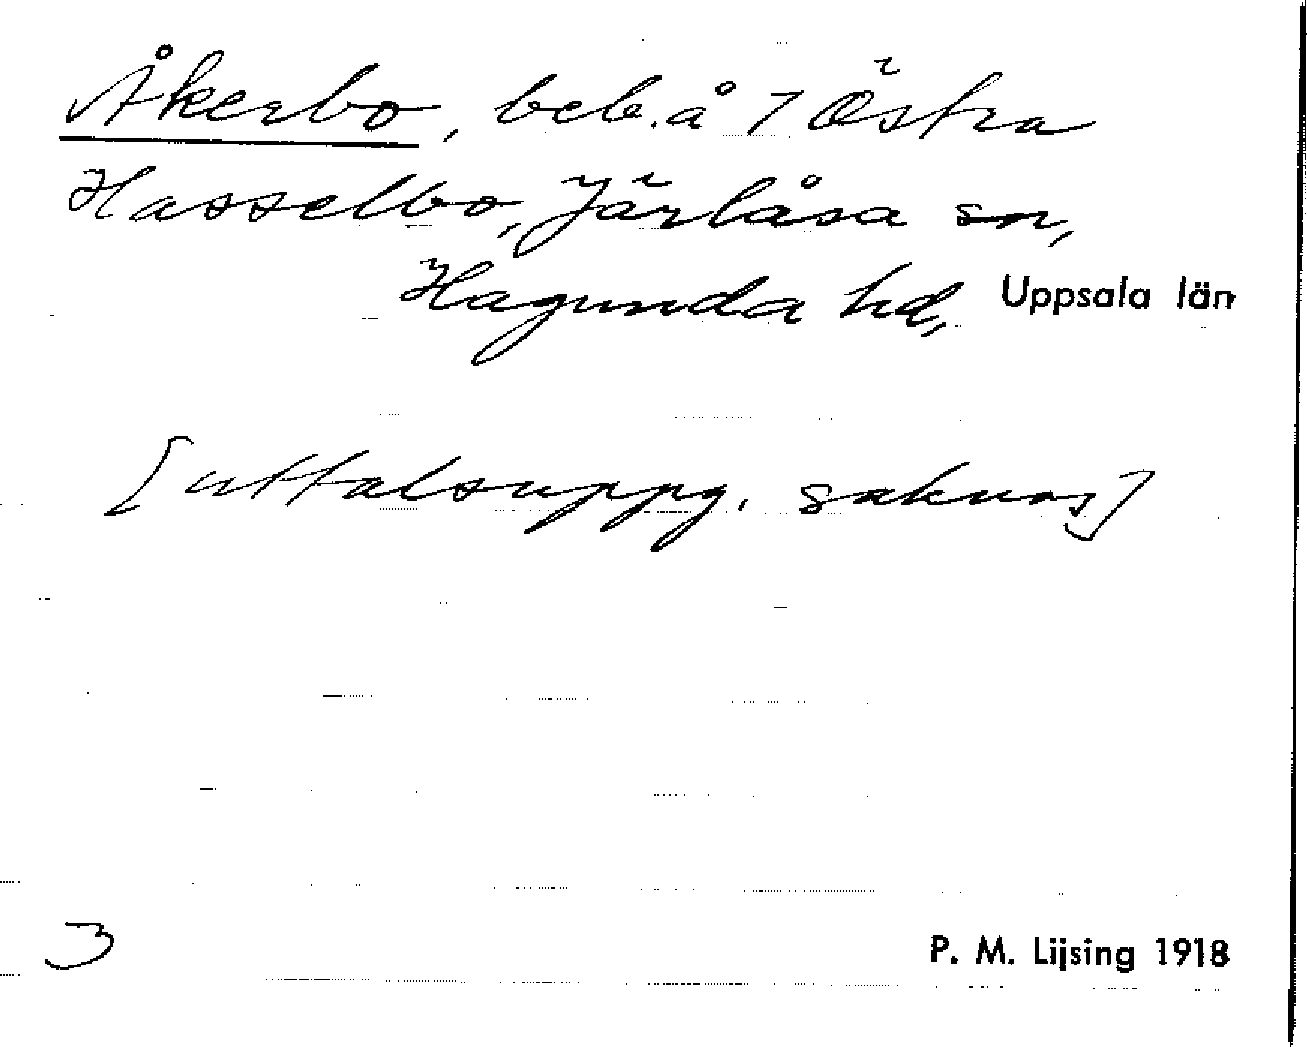 Åkerbo, beb. å 7 Östra
Hasselbo, Järlåsa sn,
Hagunda hd, Uppsala län
[uttalsuppg. saknas]
3
P. M. Lijsing 1918